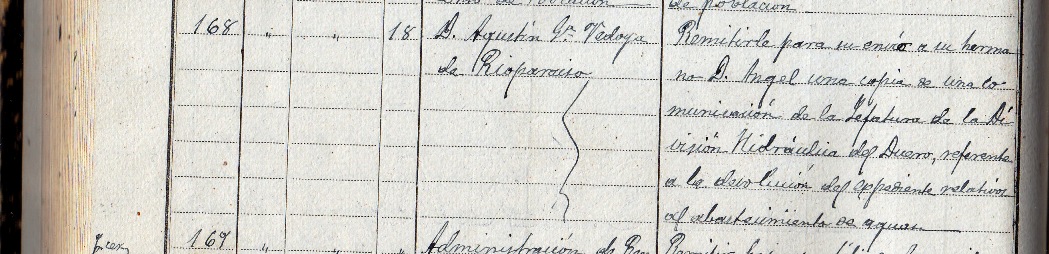 de población
168 " " 18 D. Agustín Gª Vedoya Remitirle para su envío a su herma
de Rioparaiso no D. Angel una copia de una co-
municación de la Jefatura de la Di
visión Hidráulica del Duero, referente
a la devolución del expediente relativo
al abastecimiento de aguas
169 " " " Administración de